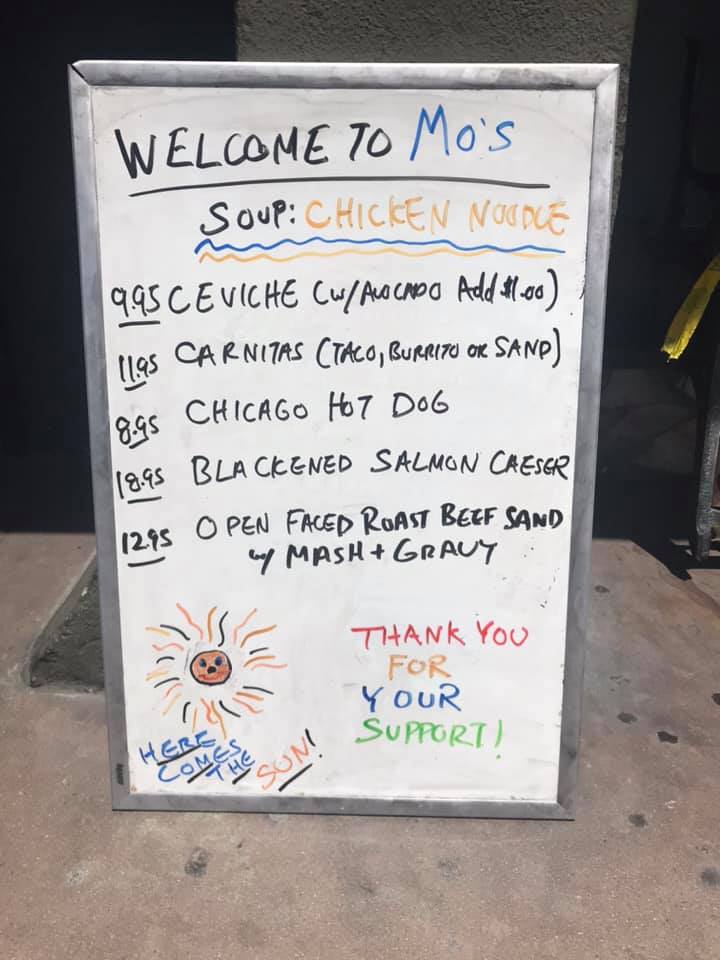 WELCOME TO MO'S
SOUP: CHICKEN NOODLE
9.95 CEVICHE (W/AVOCADO Add $1.00)
11.95 CARNITAS (TACO, BURRITO OR SAND)
8.95 CHICAGO HOT DOG
18.95 BLACKENED SALMON CAESER
12.95 OPEN FACED ROAST BEEF SAND
w/ MASH + GRAVY
THANK YOU
FOR
YOUR
SUPPORT!
HERE
COMES
THE SUN!